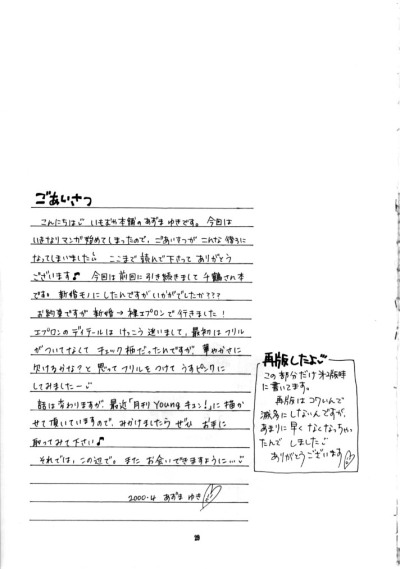 ごあいさつ
こんにちは♡ いもまや本舗のあずま ゆきです。今回は
いきなりマンガ始めてしまったので、ごあいさつがこんな後ろに
なってしまいました ここまで読んで下さってありがとう
ございます♪ 今回は前回に引き続きまして千鶴さん本
です。新婚モノにしたんですがいかがでしたか???
お約束ですが新婚→裸エプロンで行きました!
エプロンのディテールはけっこう迷いまして、最初はフリル
がついてなくてチェック柄だったんですが、華やかさに
欠けるかな?と思ってフリルをつけてうすピンクに
してみましたー♡
話は変わりますが、最近「月刊Youngキュン!」に描か
せて頂いていますので、みかけましたらぜひお手に
取ってみて下さい♪
それでは、この辺で。またお会いできますように…♡
2000.4 あずま ゆき
再版したよ♡
この部分だけ再版時
に書いてます。
再版はコワいんで
滅多にしないんですが、
あまりに早くなくなっちゃっ
たんで しました♡
ありがとうございます♡
29